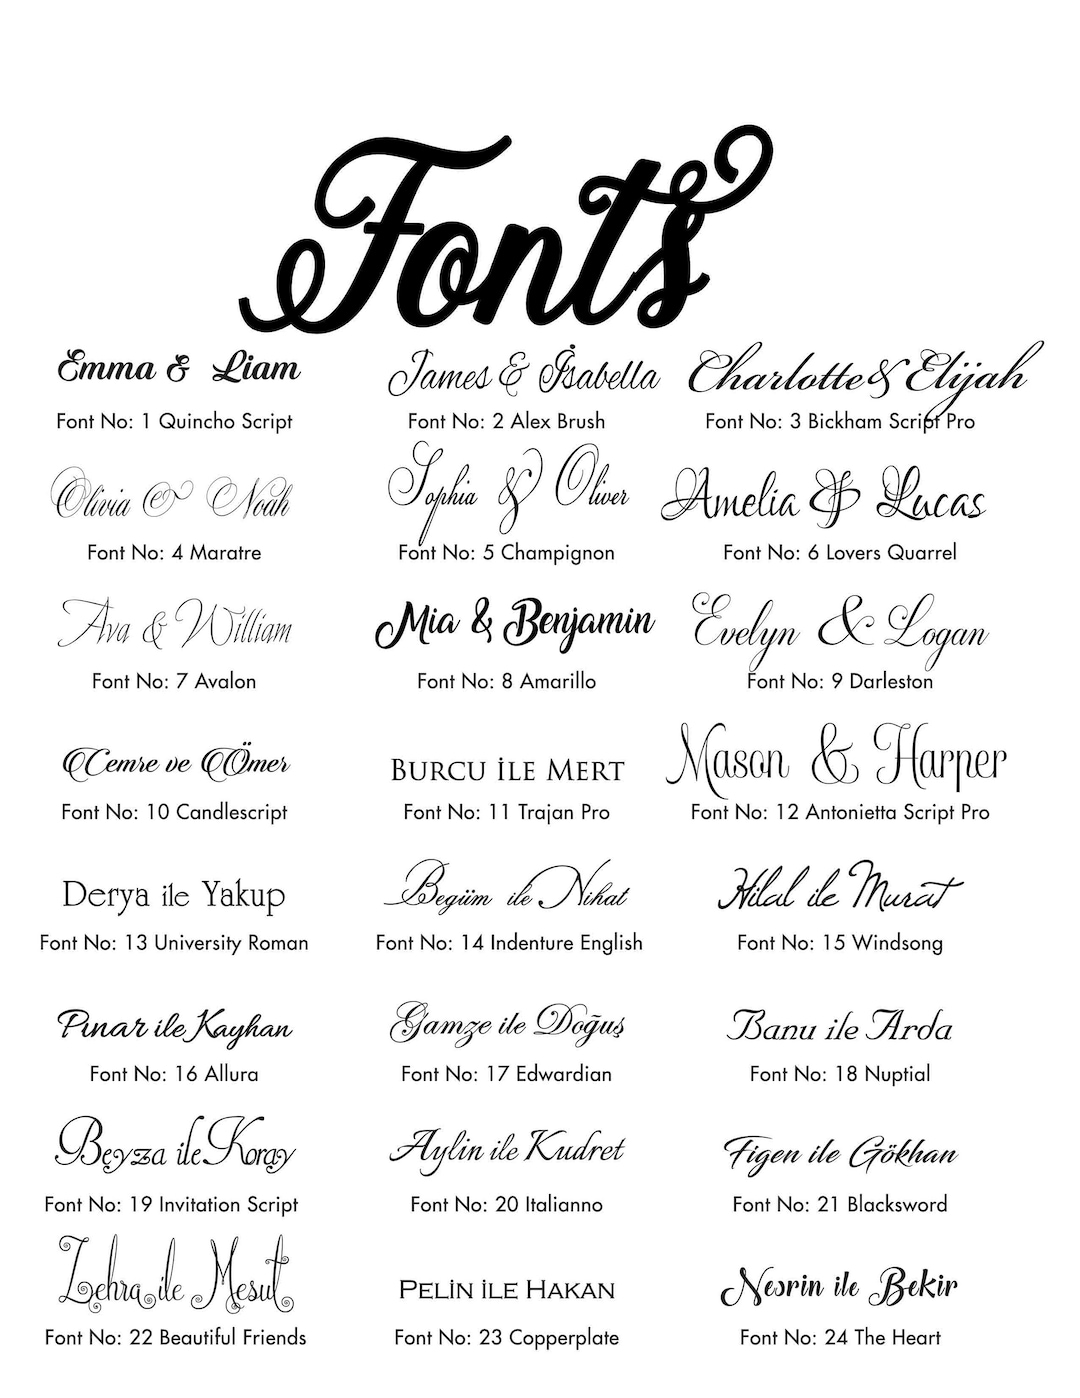 Fonts
Emma & Liam
Font No: 1 Quincho Script
James & İsabella
Font No: 2 Alex Brush
Charlotte & Elijah
Font No: 3 Bickham Script Pro
Olivia & Noah
Font No: 4 Maratre
Sophia & Oliver
Font No: 5 Champignon
Amelia & Lucas
Font No: 6 Lovers Quarrel
Ava & William
Font No: 7 Avalon
Mia & Benjamin
Font No: 8 Amarillo
Evelyn & Logan
Font No: 9 Darleston
Cemre ve Ömer
Font No: 10 Candlescript
BURCU İLE MERT
Font No: 11 Trajan Pro
Mason & Harper
Font No: 12 Antonietta Script Pro
Derya ile Yakup
Font No: 13 University Roman
Begüm ile Nihat
Font No: 14 Indenture English
Hilal ile Murat
Font No: 15 Windsong
Pınar ile Kayhan
Font No: 16 Allura
Gamze ile Doğuş
Font No: 17 Edwardian
Banu ile Arda
Font No: 18 Nuptial
Beyza ile Koray
Font No: 19 Invitation Script
Aylin ile Kudret
Font No: 20 Italianno
Figen ile Gökhan
Font No: 21 Blacksword
Zehra ile Mesut
Font No: 22 Beautiful Friends
PELİN İLE HAKAN
Font No: 23 Copperplate
Nesrin ile Bekir
Font No: 24 The Heart